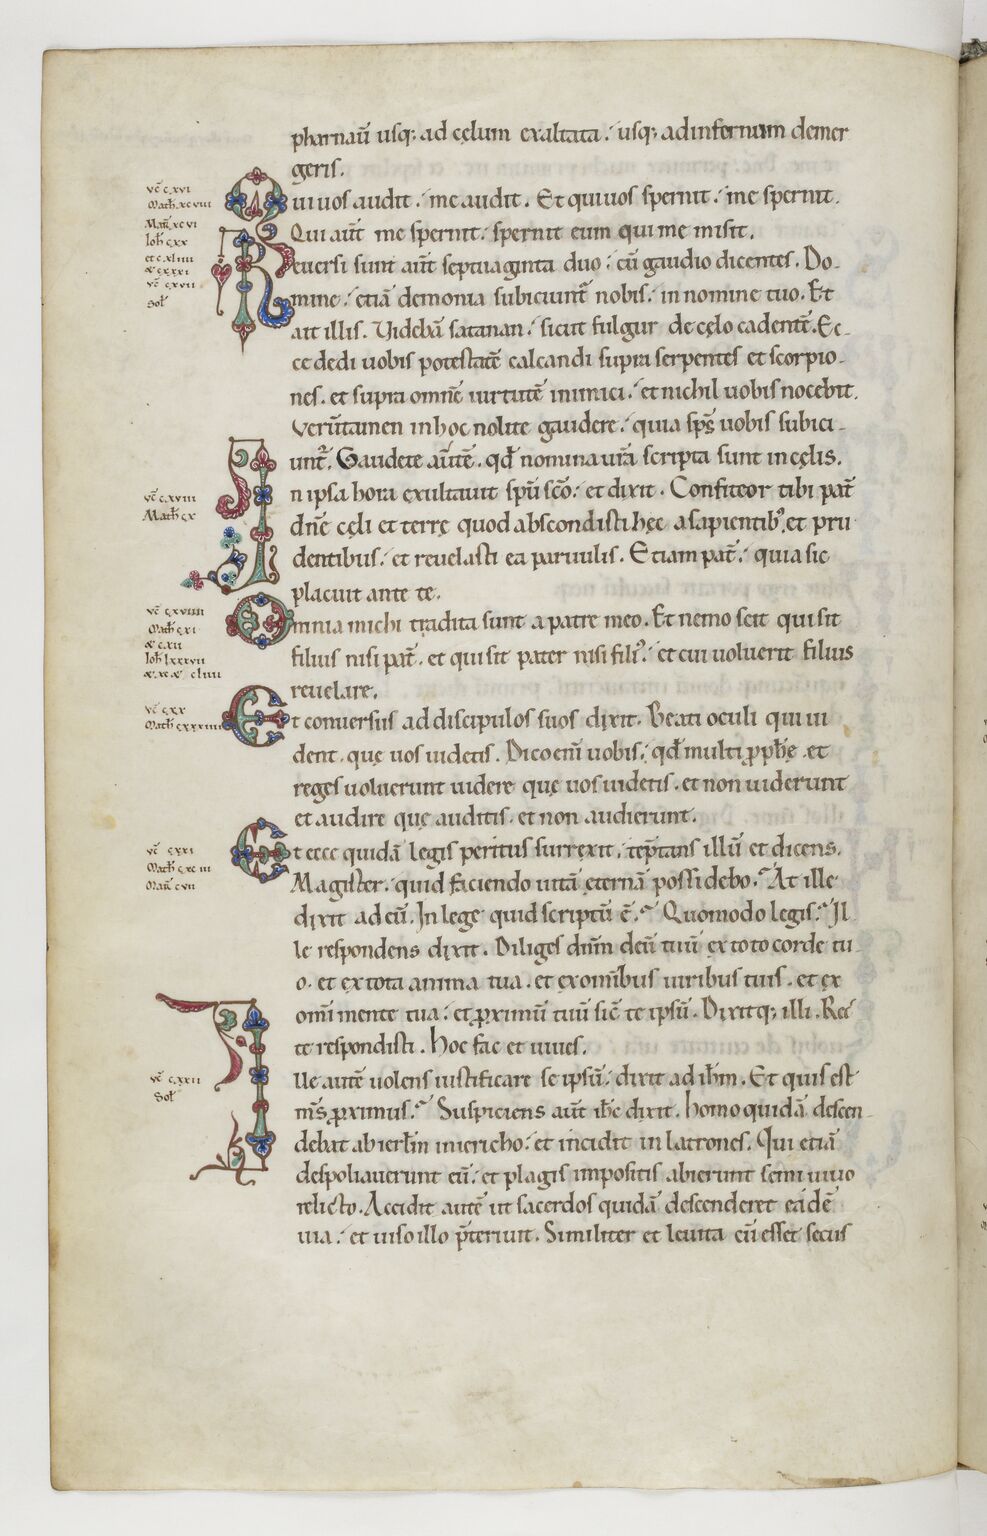 pharnaū usq; ad cęlum exaltata. usq; ad infernum demer
geris.
vc̄ c̨xvi
Math̄ xcviii
Qui uos audit. me audit. Et qui uos spernit. me spernit.
Mar̄ xcvi
Ioh̄ cxx
Qui aūt me spernit. spernit eum qui me misit.
et cxliiii
& cxxxi
Reuersi sunt aūt septuaginta duo. cū gaudio dicentes. Do-
vc̄ cxvii
Sol̄
mine. etiā demonia subiciunt̄ nobis. in nomine tuo. Et
ait illis. Videbā satanan. sicut fulgur de cęlo cadentē. Ec-
ce dedi uobis potestatē calcandi supra serpentes et scorpio-
nes. et supra omnē uirtutē inimici. et nichil uobis nocebit.
Verūtamen in hoc nolite gaudere. quia sp̄s uobis subici-
unt̄. Gaudete autē. qđ nomina ur̄a scripta sunt in cęlis.
vc̄ cxviii
Math̄ cx
In ipsa hora exultauit spū scō. et dixit. Confiteor tibi pat̄
dn̄e cęli et terrę quod abscondisti hęc a sapientib; et pru
dentibus. et reuelasti ea paruulis. Etiam pat̄. quia sic
placuit ante te.
vc̄ cxviiii
Math̄ cxi
& cxii
Ioh̄ lxxxvii
Omnia michi tradita sunt a patre meo. Et nemo scit qui sit
filius nisi pat̄. et qui sit pater nisi fili9. et cui uoluerit filius
reuelare.
vc̄ cxx
Math̄ cxxxiiii
Et conuersus ad discipulos suos dixit. Beati oculi qui ui
dent. quę uos uidetis. Dico eni̅ uobis. qđ multi p̱pħę. et
reges uoluerunt uidere quę uos uidetis. et non uiderunt
et audire quę auditis. et non audierunt.
vc̄ cxxi
Math̄ cxciii
Mar̄ cvii
Et ecce quidā legis peritus surrexit. tēptans illū et dicens.
Magister. quid faciendo uitā eternā possidebo. At ille
dixit ad eū. In lege quid scriptū ē. Quomodo legis. Il
le respondens dixit. Diliges dn̄m deū tuū ex toto corde tu-
o. et ex tota anima tua. et ex omībus uiribus tuis. et ex
omī mente tua. et p̱ximū tuū sic̄ te ipsū. Dixitq; illi. Rec
te respondisti. hoc fac et uiues.
vc̄ cxxii
Sol̄
Ille autē uolens iustificare se ipsū. dixit ad ih̄m. Et quis est
m̄s p̱ximus. Suspiciens aūt ih̄c dixit. homo quidā descen-
debat ab ierl̄m in iericho. et incidit in latrones. Qui etiā
despoliauerunt eū. et plagis impositis abierunt semi uiuo
relicto. Accidit autē ut sacerdos quidā descenderet eadē
uia. et uiso illo p̄teriuit. Similiter et leuita cū esset secus